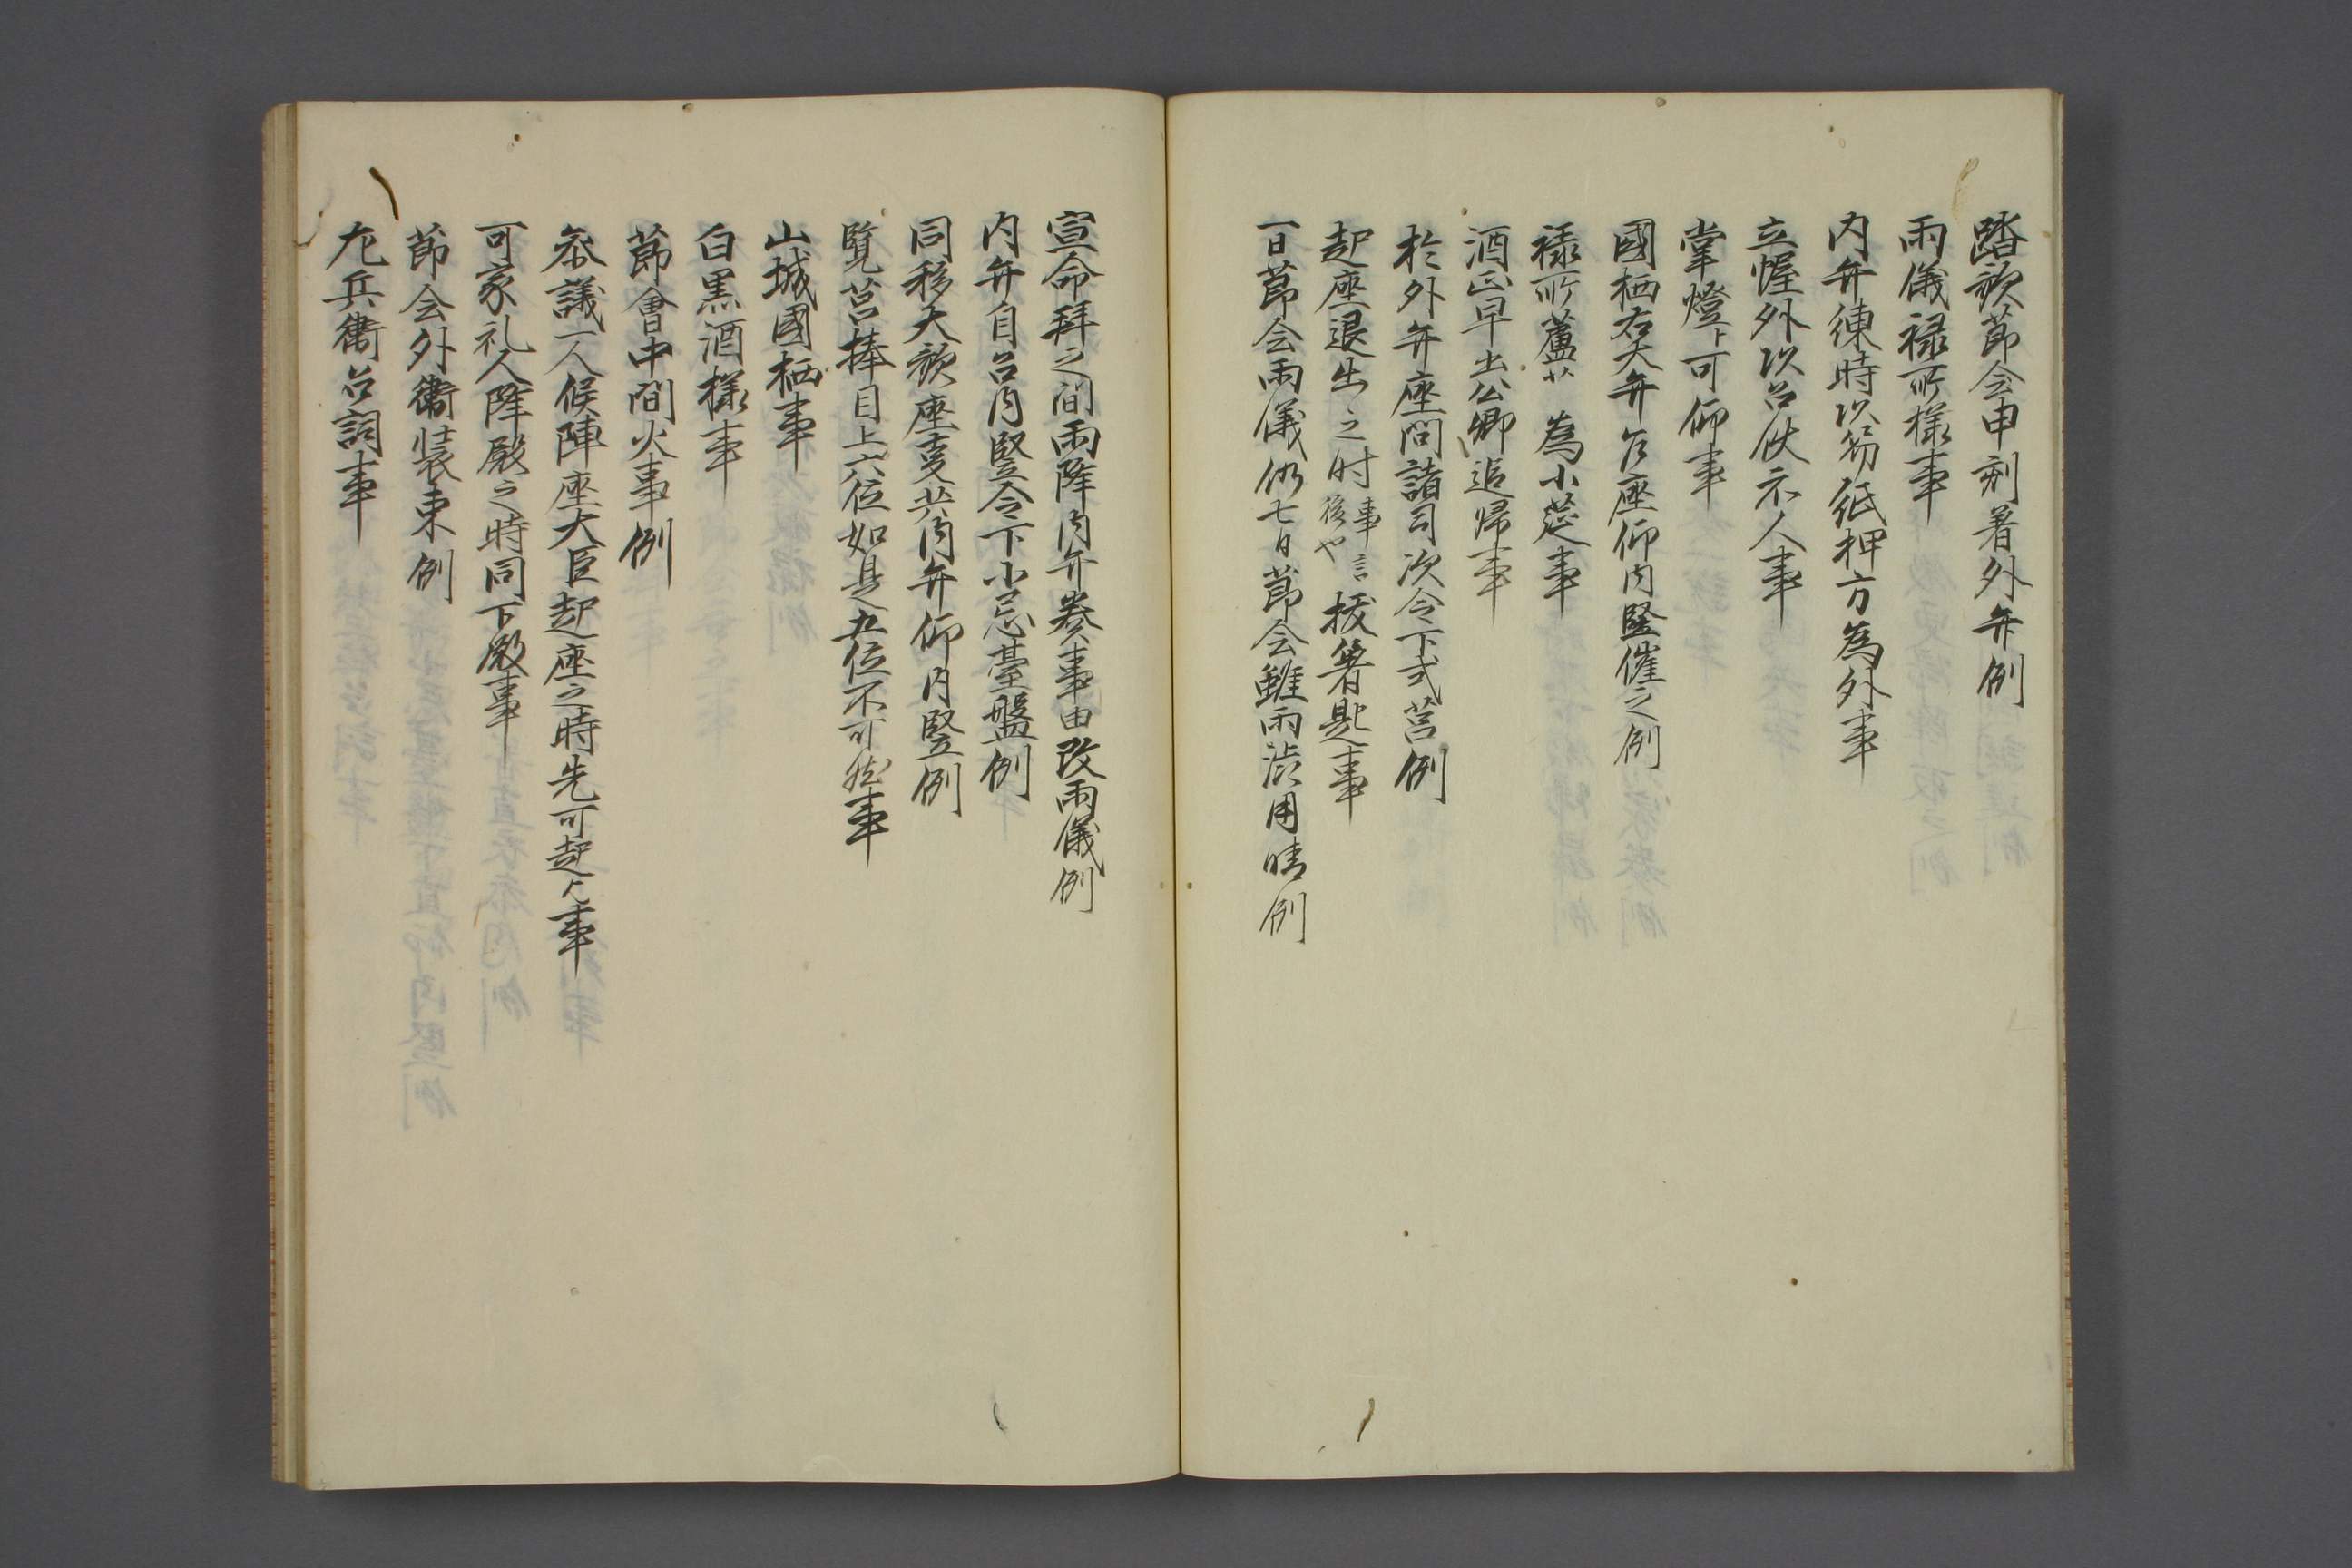 踏歌節会申刻著外弁例
雨儀禄所様事
内弁練時以笏紙押方為外事
立幄外以召仗不人事
掌燈下可仰事
國栖右大弁乍座仰内竪催之例
禄所蘆 為小筵事
酒正早出公卿追帰事
於外弁座問諸司次令下式筥例
起座退出之时事後也言抜箸匙事
一日節会雨儀仍七日節会雖雨渋用晴例
宣命拜之間雨降内弁奏事由改雨儀例
内弁自召内竪令下小忌臺盤例
同移大歌座事共内弁仰内竪例
覧筥捧目上六位如是五位不可然事
山城國栖事
白黒酒様事
節會中間火事例
参議一人候陣座大臣起座之時先可起欤事
可家礼人降殿之時同下殿事
節会外衛装束例
左兵衛召詞事